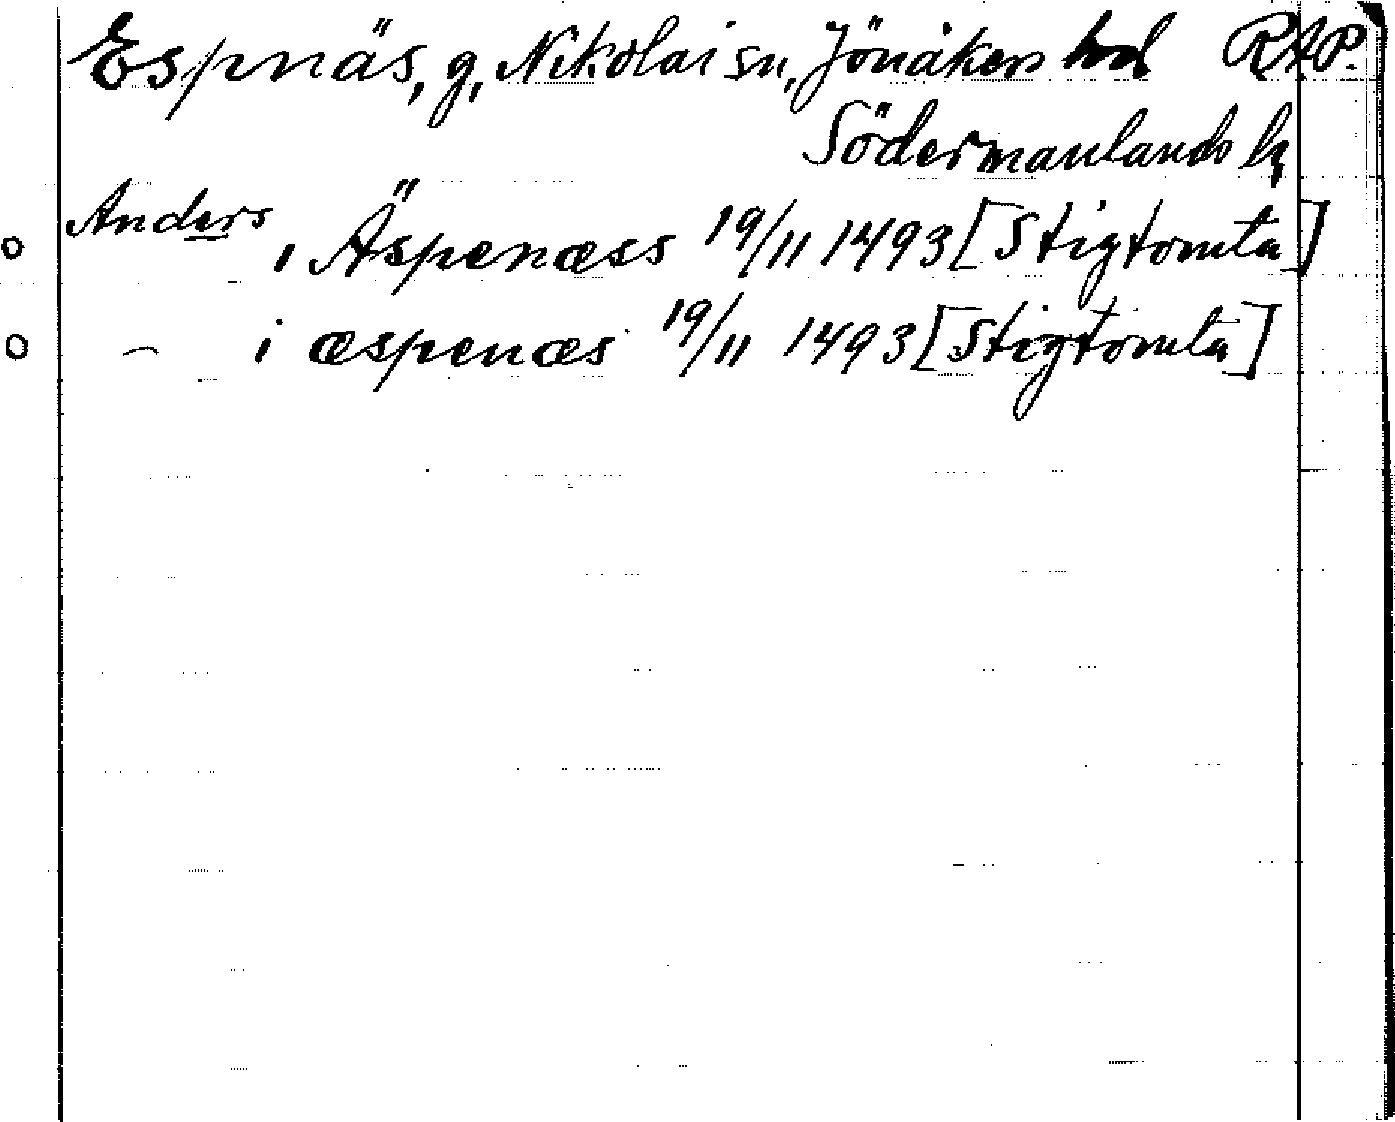 Espnäs, g, Nikolai sn, Jönåkers hd RAP.
Södermanlands l
Anders i Äspenæss 19/11 1493 [Stigtomta]
o
o – i æspenæs 19/11 1493 [Stigtomta]